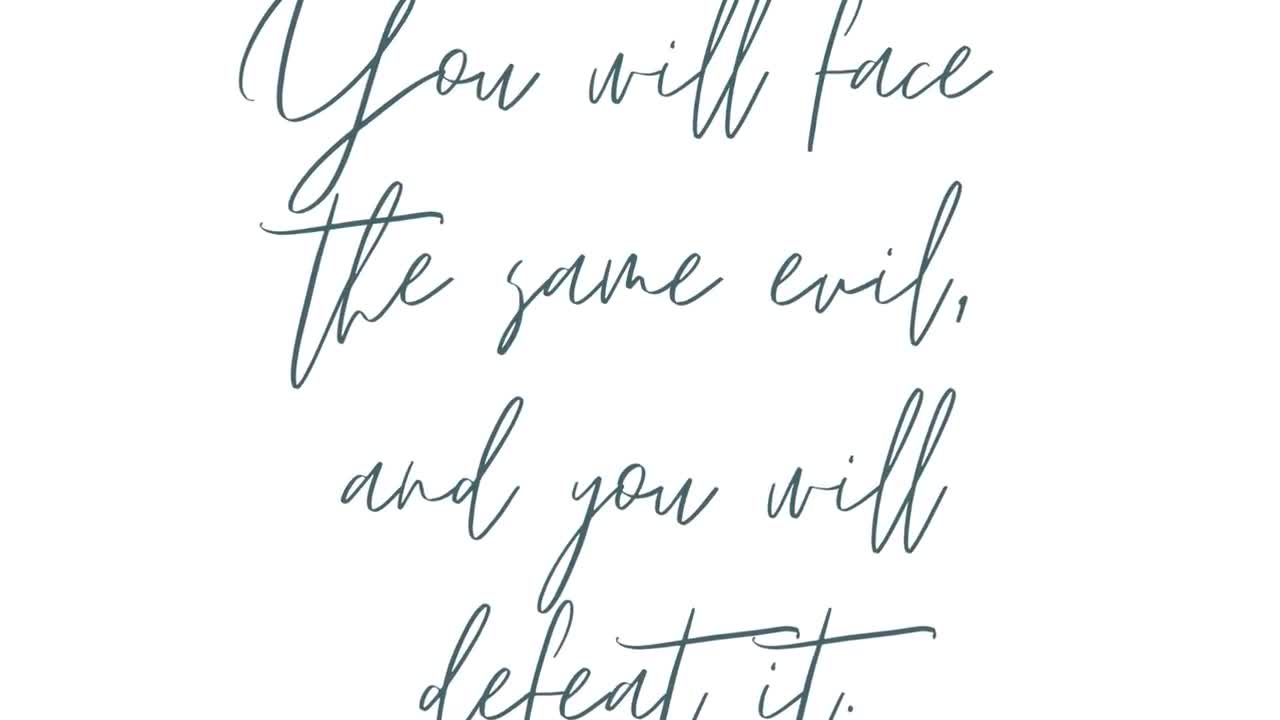 You will face
the same evil,
and you will
defeat it.